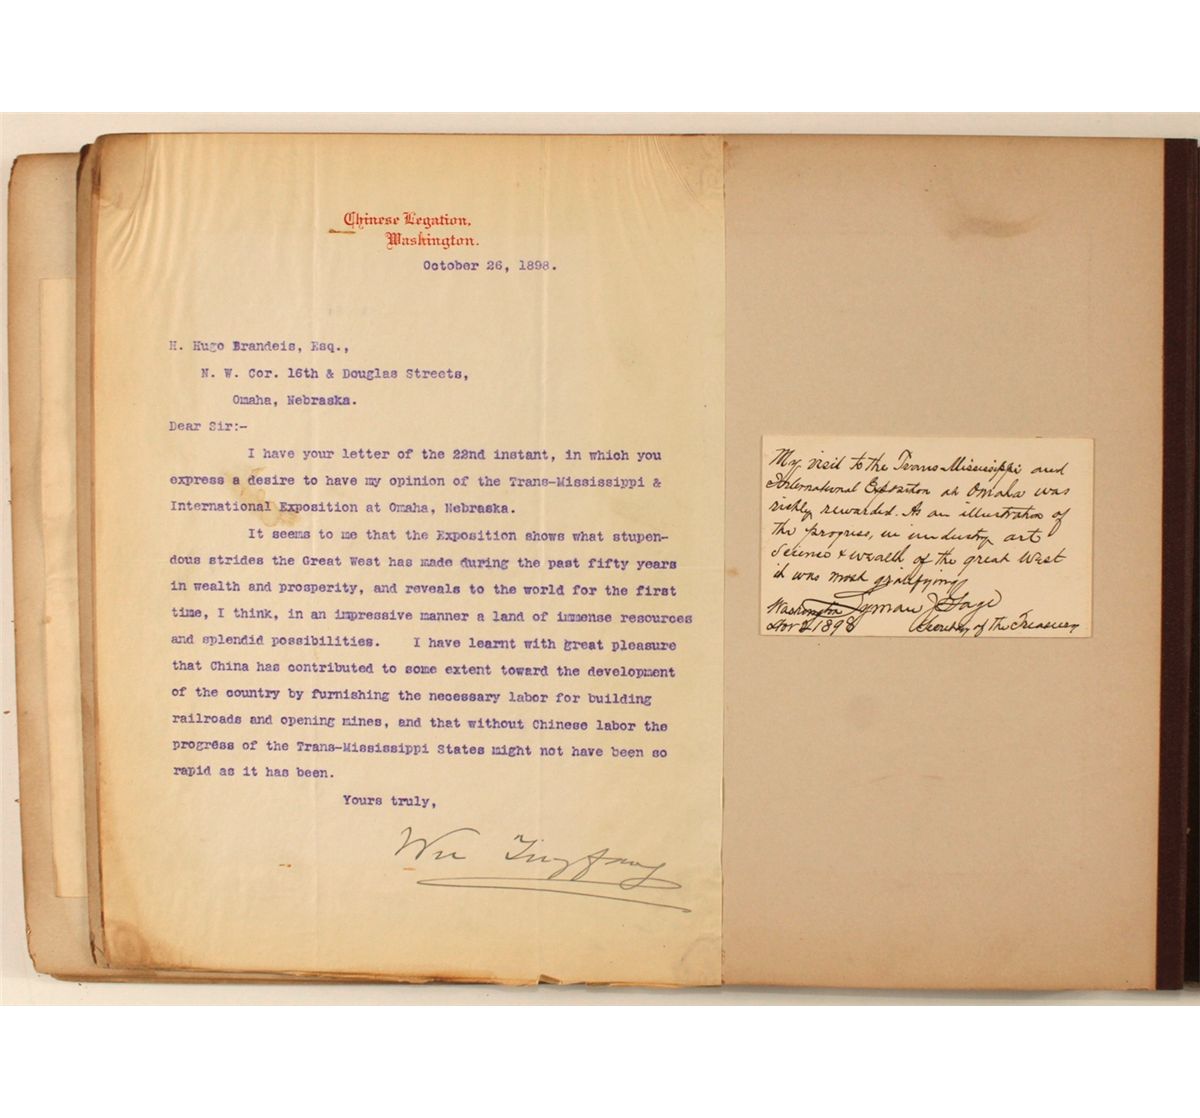 Chinese Legation,
Washington.
October 26, 1898.
H. Hugo Brandeis, Esq.,
N. W. Cor. 16th & Douglas Streets,
Omaha, Nebraska.
Dear Sir:-
I have your letter of the 22nd instant, in which you
express a desire to have my opinion of the Trans-Mississippi &
International Exposition at Omaha, Nebraska.
It seems to me that the Exposition shows what stupen-
dous strides the Great West has made during the past fifty years
in wealth and prosperity, and reveals to the world for the first
time, I think, in an impressive manner a land of immense resources
and splendid possibilities. I have learnt with great pleasure
that China has contributed to some extent toward the development
of the country by furnishing the necessary labor for building
railroads and opening mines, and that without Chinese labor the
progress of the Trans-Mississippi States might not have been so
rapid as it has been.
Yours truly,
Wu Tingfang
My visit to the Trans-Mississippi and
International Exposition at Omaha was
richly rewarded. As an illustration of
the progress, in industry art
Science & wealth of the great West
it was most gratifying
Washington Lyman J Gage
Nov 1898 Secretary of the Treasury